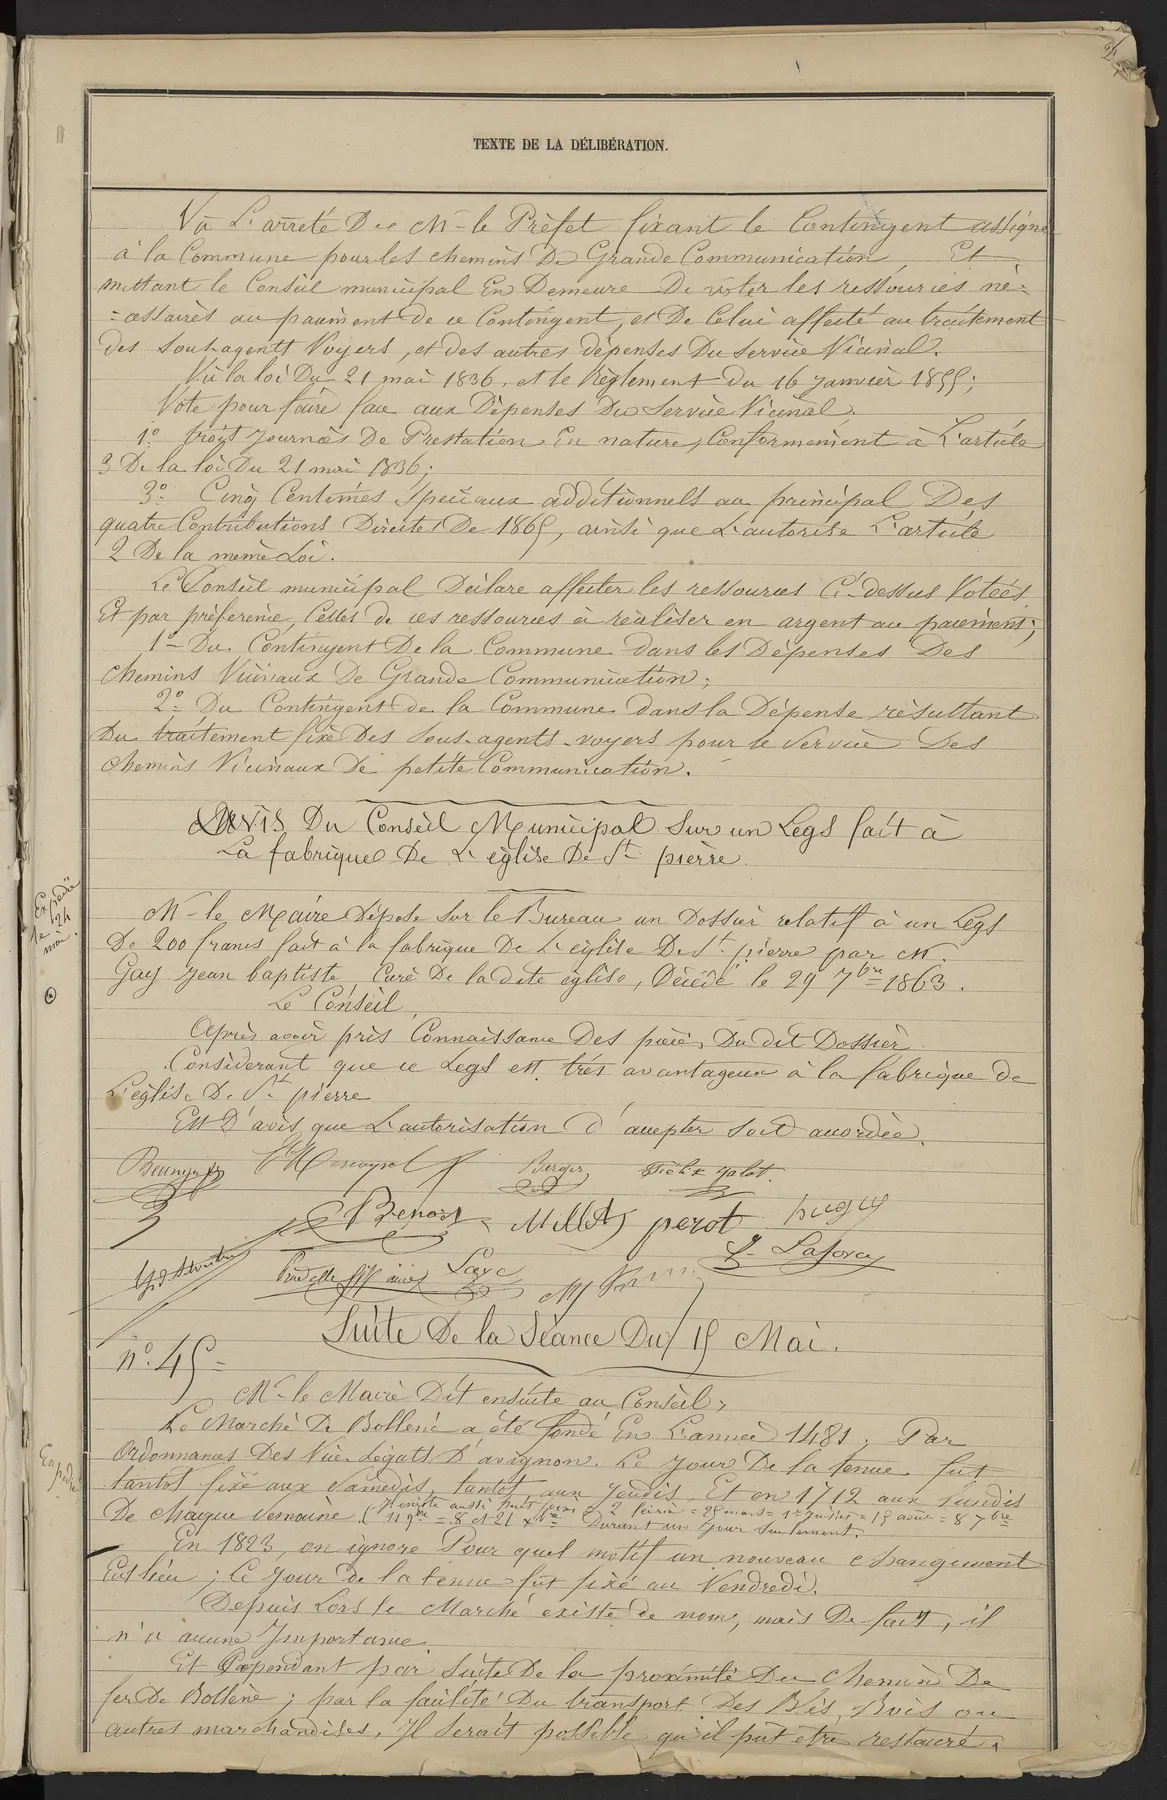 2
TEXTE DE LA DÉLIBÉRATION.
Vu L'arrêté De M. le Prèfet fixant le Contingent assigné
à la Commune pour les chemins De Grande Communication, Et
mettant le Conseil municipal En Demeure De voter les ressources né=
=cessaires au paiement de ce Contingent, et De Celui affecté au traitement
des sous-agents Voyers, et des autres dépenses Du service Vicinal.
Vu la loi Du 21 mai 1836, et le Règlement du 16 Janvier 1855;
Vote pour faire face aux Dépenses Du Service Vicinal.
1º trois journées De Prestation En nature, Conformement à L'article
3 De la loi Du 21 mai 1836;
3º Cinq Centimes Speciaux additionnels au principal Des
quatre Contributions Directes De 1865, ainsi que L'autorise L'article
2 De la meme Loi.
Le Conseil municipal Declare affecter les ressources Ci-dessus Votées
Et par prèference, Celles de ces ressources à rèaliser en argent au paiement;
1º Du Contingent De la Commune dans les Dépenses Des
chemins Vicinaux De Grande Communication;
2º Du Contingent de la Commune dans la Dépense rèsultant
Du traitement fixé Des Sous-agents-voyers pour le Service Des
chemins Vicinaux De petite Communication.
Avis Du Conseil Municipal Sur un Legs fait à
La fabrique De L'église De St pierre
Expédié
le 24
mai.
M. le Maire Dépose Sur le Bureau un Dossier relatif à un Legs
De 200 francs fait à la fabrique De L'eglise De St pierre par M.
Gay Jean baptiste, Curé De la dite église, Décédé le 29 7bre 1863.
Le Conseil,
Après avoir pris Connaissance Des pièces Du dit Dossier
Considerant que ce Legs est très avantageux à la fabrique de
L'église De St pierre
Est D'avis que L'autorisation d'accepter soit accordée.
Berger Félix galot.
Benoit Millet perot hugues
L. Laforey
Suite De la Séance Du 15 Mai.
nº 45=
Mr le Maire Dit ensuite au Conseil,
Le Marché De Bollène a été fondé En L'année 1481, Par
Expédié
Ordonnances Des Vice-Légats D'avignon. Le Jour De la tenue fut
tantot fixé aux Samedis, tantot aux Jeudis, Et en 1712 aux lundis
De chaque Semaine. (Il existe aussi huit foires 2 fevrier = 25 mars = 1er Juillet = 15 aout = 8 7bre
11 9bre = 8 et 21 xbre Durant un jour seulement.
En 1823, on ignore Pour quel motif un nouveau changement
Eut lieu; Le Jour de la tenue fut fixé au Vendredi.
Depuis Lors le Marché existe de nom, mais De fait, il
n'a aucune Importance.
Et Cependant par Suite De la proximité Du Chemin De
fer De Bollène; par la facilité Du transport Des Blés, Bois ou
autres marchandises, Il serait possible qu'il put etre restauré.